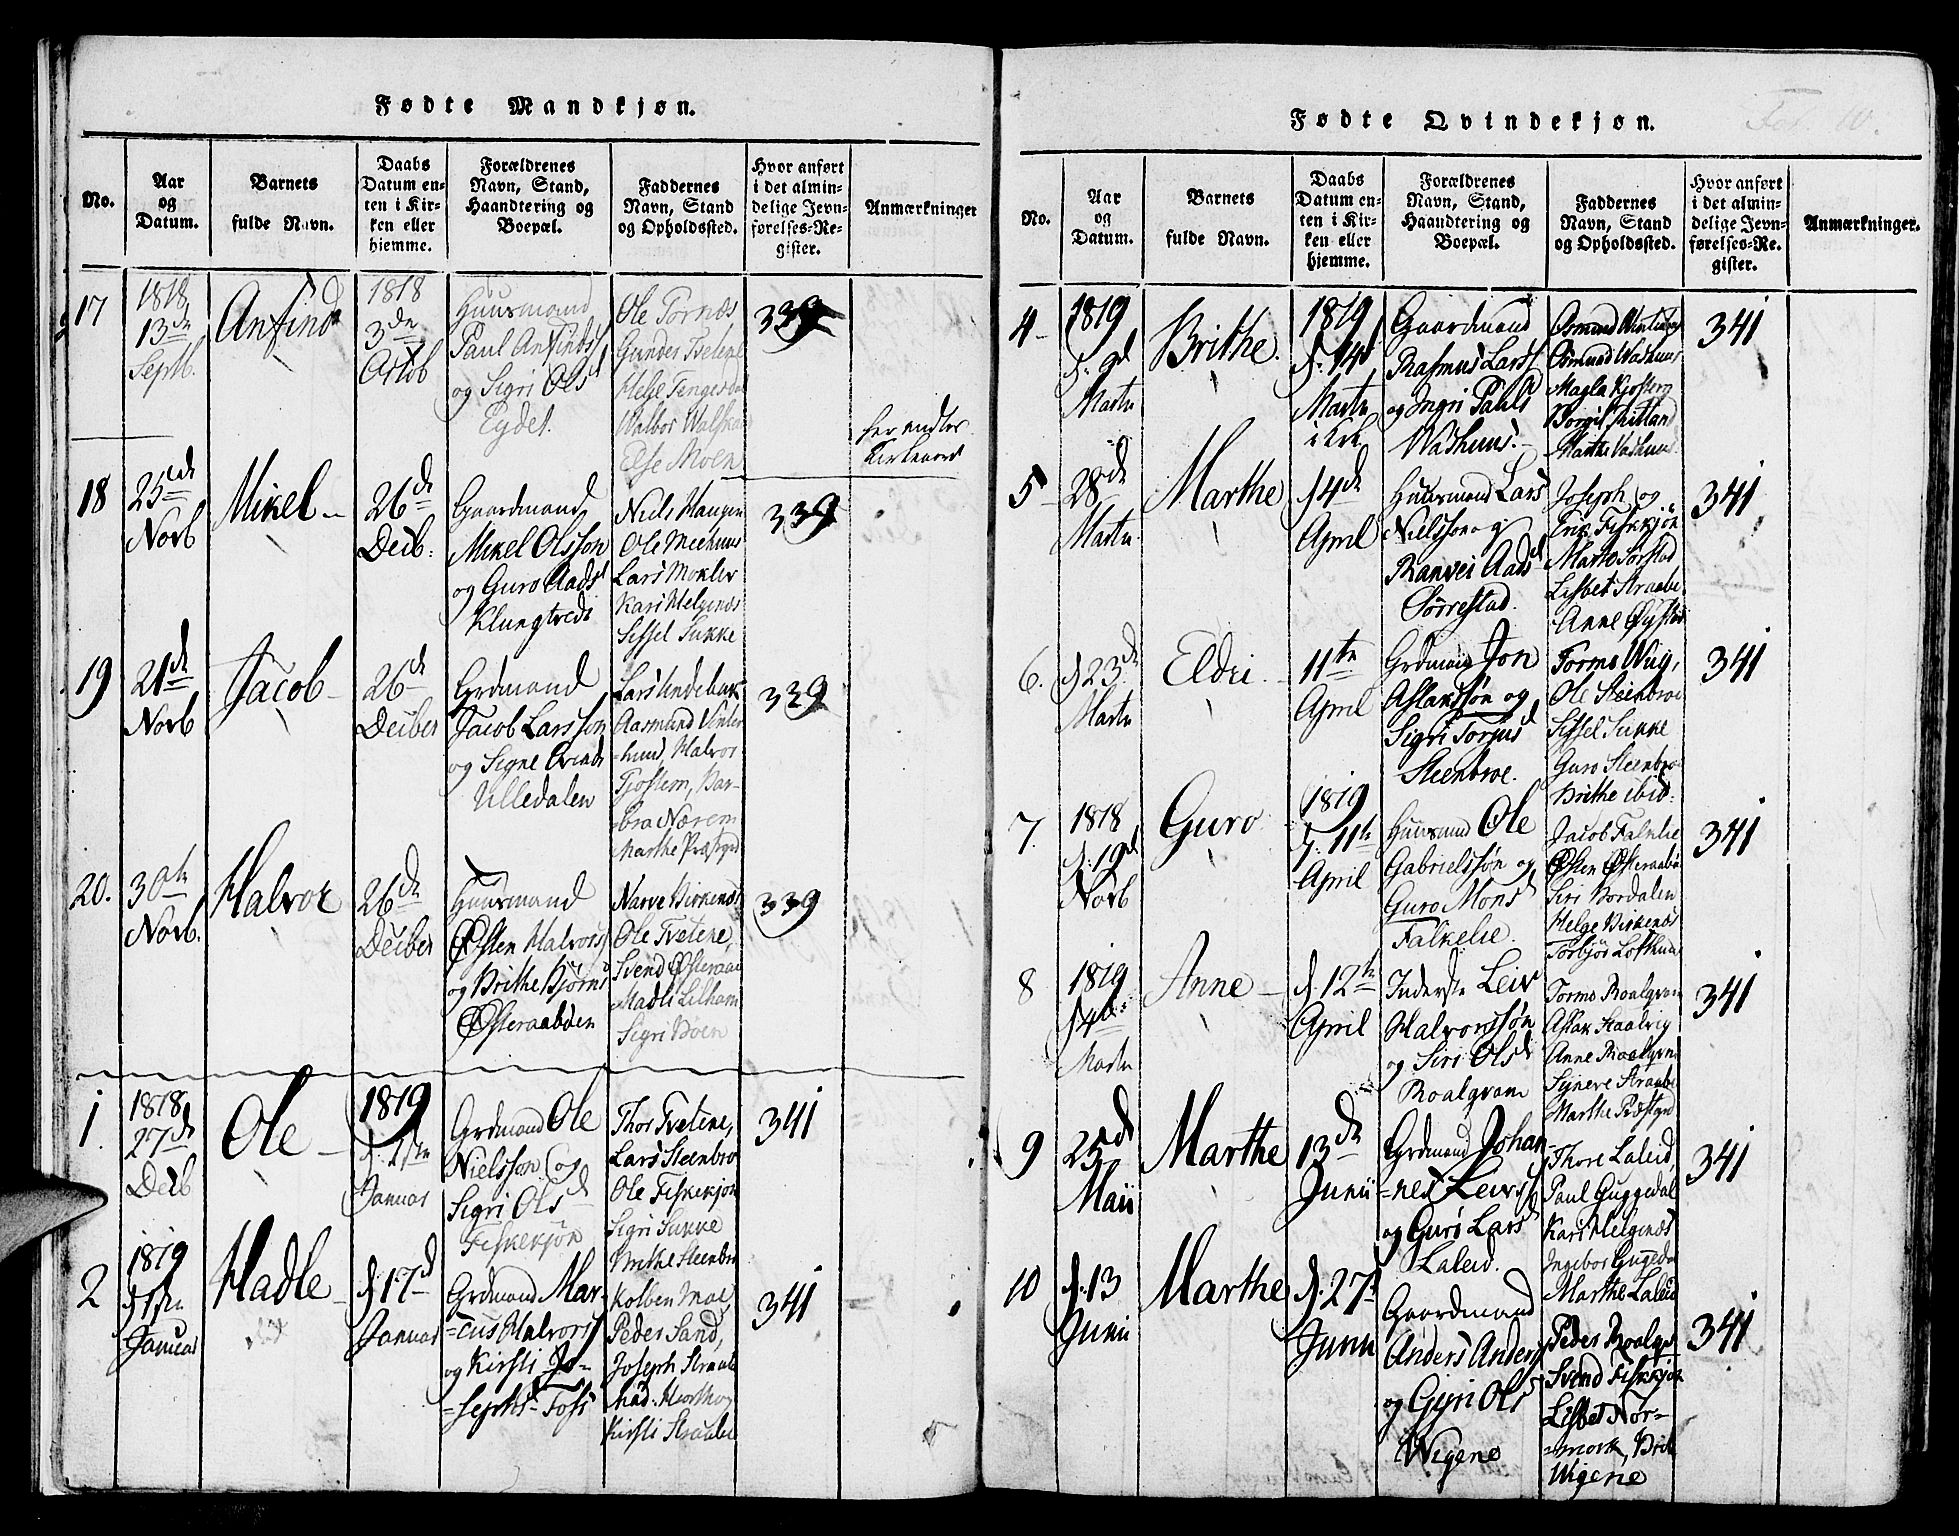 Fødte Mandkjøn.
No.
Aar
og
Datum.
Barnets
fulde Navn.
Daabs
Datum en-
ten i Kir-
ken eller
hjemme.
Forældrenes
Navn, Stand,
Haandtering og
Boepæl.
Faddernes
Navn, Stand
og Opholdssted.
Hvor anført
i det almin-
delige Jevn-
førelses-Re-
gister.
Anmærkninger
17
1818
13de
Septb.
Anfind
1818
3de
Octob
Huusmand
Paul Anfinds
og Sigri Olsd
Egdet.
Ole Tornæs
Gunder Tvetene
Helje Tengesdal
Walbor
Else Moen
339
her endtes
Kirkeaaret
18
25de
Novb
Mikel
26de
Decb:
Gaardmand
Mikel Olsson
og Guro Aadsd
Klungtvedt
Niels Haugen
Ole Meehuus
Lars Mokler
Kari Helgenæs
Sissel Sukke
339
19
21de
Novb
Jacob
26de
Decber
Grdmand
Jacob Larsson
og Signe
Ulledalen
Lars Indebak
Aasmund Vinter
=huus, Halvor
Tjostem, Bar-
bra Nærem
Marthe Præstgrd
339
20.
30te
Novb.
Halvor
26de
Decber
Huusmand
Østen Halvors
og Brithe Bjørnsd
Østeraabøen
Narve Birkenæs
Ole Tvetene,
Svend Østeraa
Madli Lilham
Sigri Boen
339
1
1818
27de
Decb
Ole
1819
d. 1ste
Januar
Grdmand Ole
Nielsson og
Sigri Olsd
Fiskekjøn
Thor Tvetene,
Lars Steenbro
Ole Fiskekjøn
Sigri Sukke
Brithe Steenbro
341
2
1819
d 1ste
Januar
Hadle
d. 17d
Januar
Grdmand Mar-
=cus Halvors
og Kirsti Jo-
=sephsd Foss
Kolben Moe,
Peder Sand,
Joseph Straabe
Kirsti Straabe
341
Fødte Qvindekjøn.
Fol. 10.
No.
Aar
og
Datum.
Barnets
fulde Navn.
Daabs
Datum en-
ten i Kir-
ken eller
hjemme.
Forældrenes
Navn, Stand,
Haandtering og
Boepæl.
Faddernes
Navn, Stand
og Opholdssted.
Hvor anført
i det almin-
delige Jevn-
førelses-Re-
gister.
Anmærkninger.
4
1819
d. 9d
Marts
Brithe.
1819
d. 14d
Marts
i Kirk
Gaardmand
Rasmus Larss
og Ingri Pauls
Washuus.
Osmund
Osmund Washuus
Magla Kjosterg
Borgil
Marthe Vashuus
341
5
28de
Marts
Marthe
d 4de
April
Huusmand Lars
Nielsson og
Ranvei Aadsd
Sørrestad.
Joseph og
Erik Fiskekjøn
Marta Sørstad
Lisbet Straabe
Anne Øystad
341
6.
d 23de
Marts
Eldri
11te
April
Grdmand Jon
Aslakssøn og
Sigri Torjusd
Steenbroe.
Tormo Wug,
Ole Steenbroe
Sissel Sukke
Guro Steenbroe
Brithe ibid:
341
7.
1818
d. 19d
Novb
Guro
1819
d. 11te
April
Huusmand Ole
Gabrielssøn og
Guro Monsd
Falkelie.
Jacob Falkelie
Østen Østeraabø
Siri Bordalen
Helge Birkenæs
Torbjør Lofthuus
341
8
1819
d 4de
Marts
Anne
d. 12te
April
Inderste Leiv
Halvorssøn
og Siri Olsd
Roalgvam
Tormo Roalgvam
Aslak Staalvig
Anne Roalgvm
Synere Straabe
Marthe Præstgrd
341
9
25d
Maii
Marthe
13de
Junii
Grdmand Johan
=nes Leivss
og Guri Larsd
Laleid.
Thore Laleid,
Paul Guggedal
Kari Helgenæs
Ingebor Gugedal
Marthe Laleid
341
10
d. 13
Junii
Marthe
d. 27d
Junii
Gaardmand
Anders Anders
og Gyri Olsd
Wigene
Peder Roalgv
Svend Fiskekjøn
Lisbet Nor-
=mork, Brit
Wigene
341